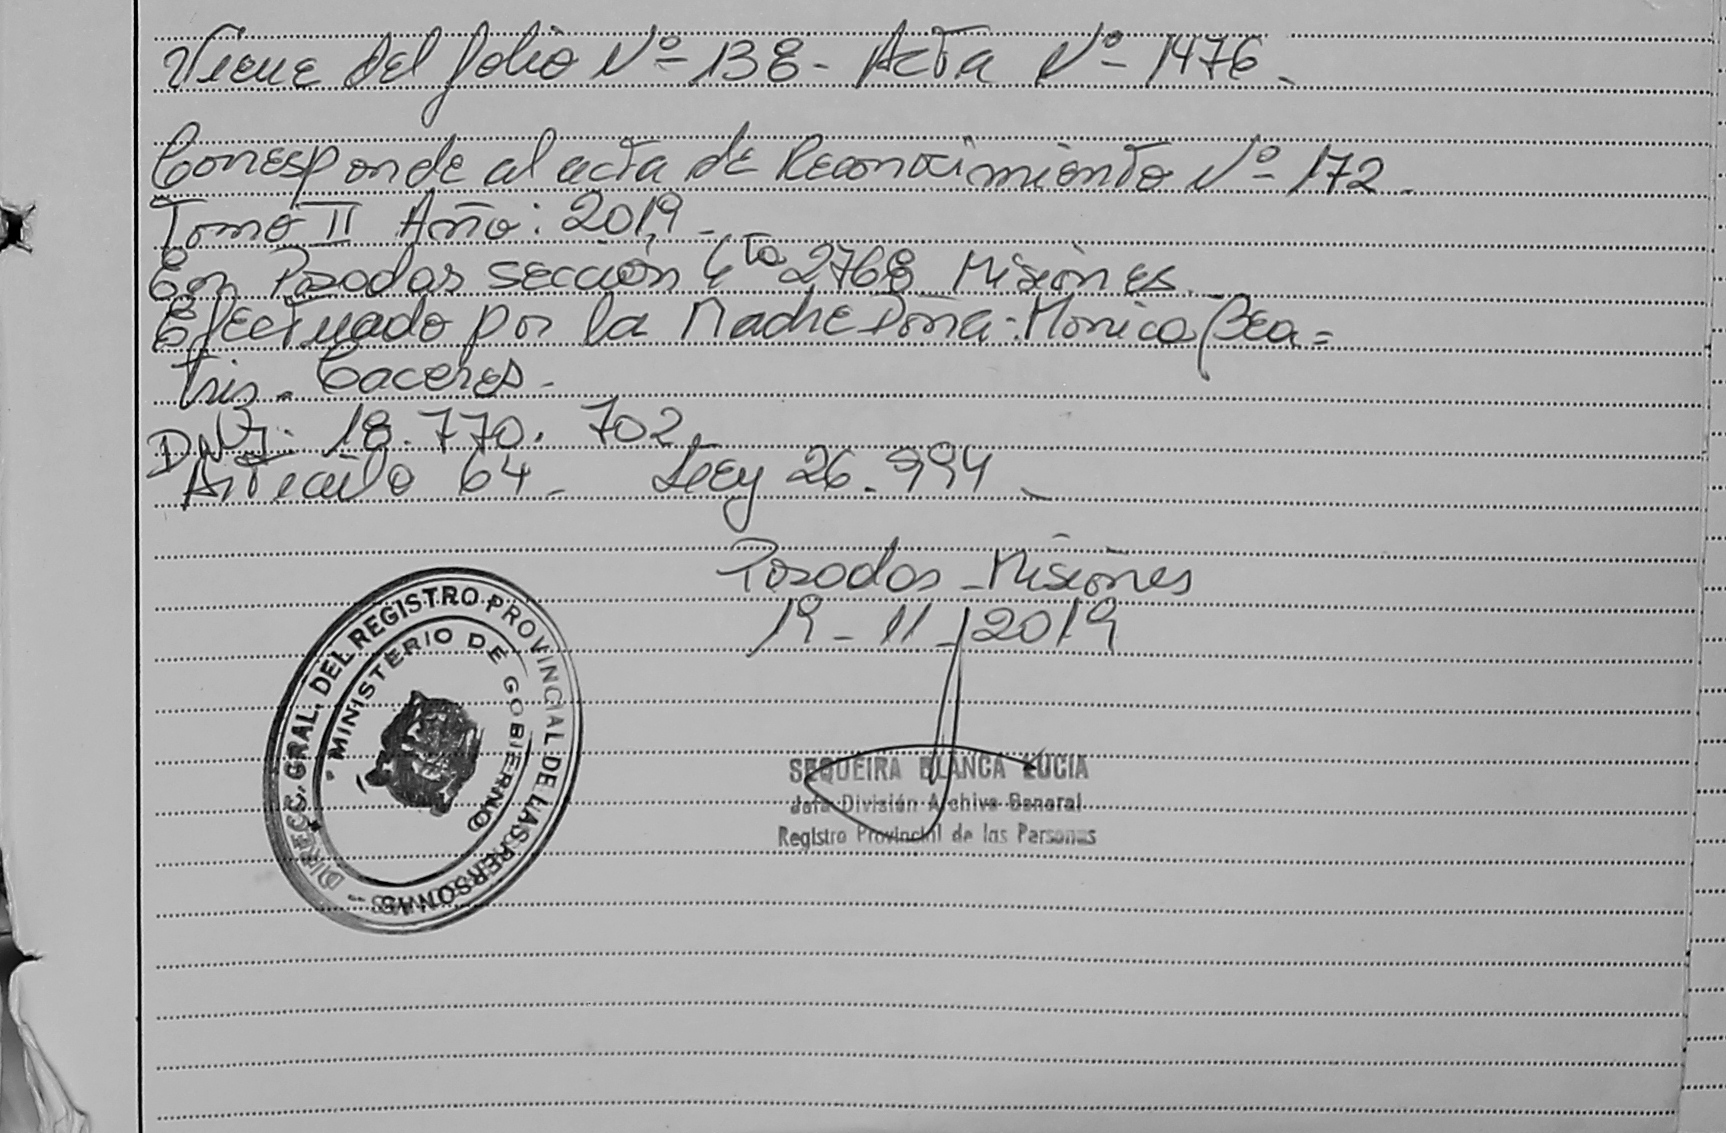 Viene del folio Nº 138 - Acta Nº 1476 -
Corresponde al acta de Reconocimiento Nº 172 -
Tomo II Año: 2019 -
En Posadas sección 4ta 2768 Misiones.
Efectuado por la Madre Doña: Monica Bea=
triz - Caceres -
D.N.I: 18.770.702,
Artículo 64 - Ley 26.994 -
Posadas - Misiones
19 - 11 - 2019
DIRECC. GRAL. DEL REGISTRO PROVINCIAL DE LAS PERSONAS -
MINISTERIO DE GOBIERNO
SEQUEIRA BLANCA LUCIA
Jefe División Archivo General
Registro Provincial de las Personas